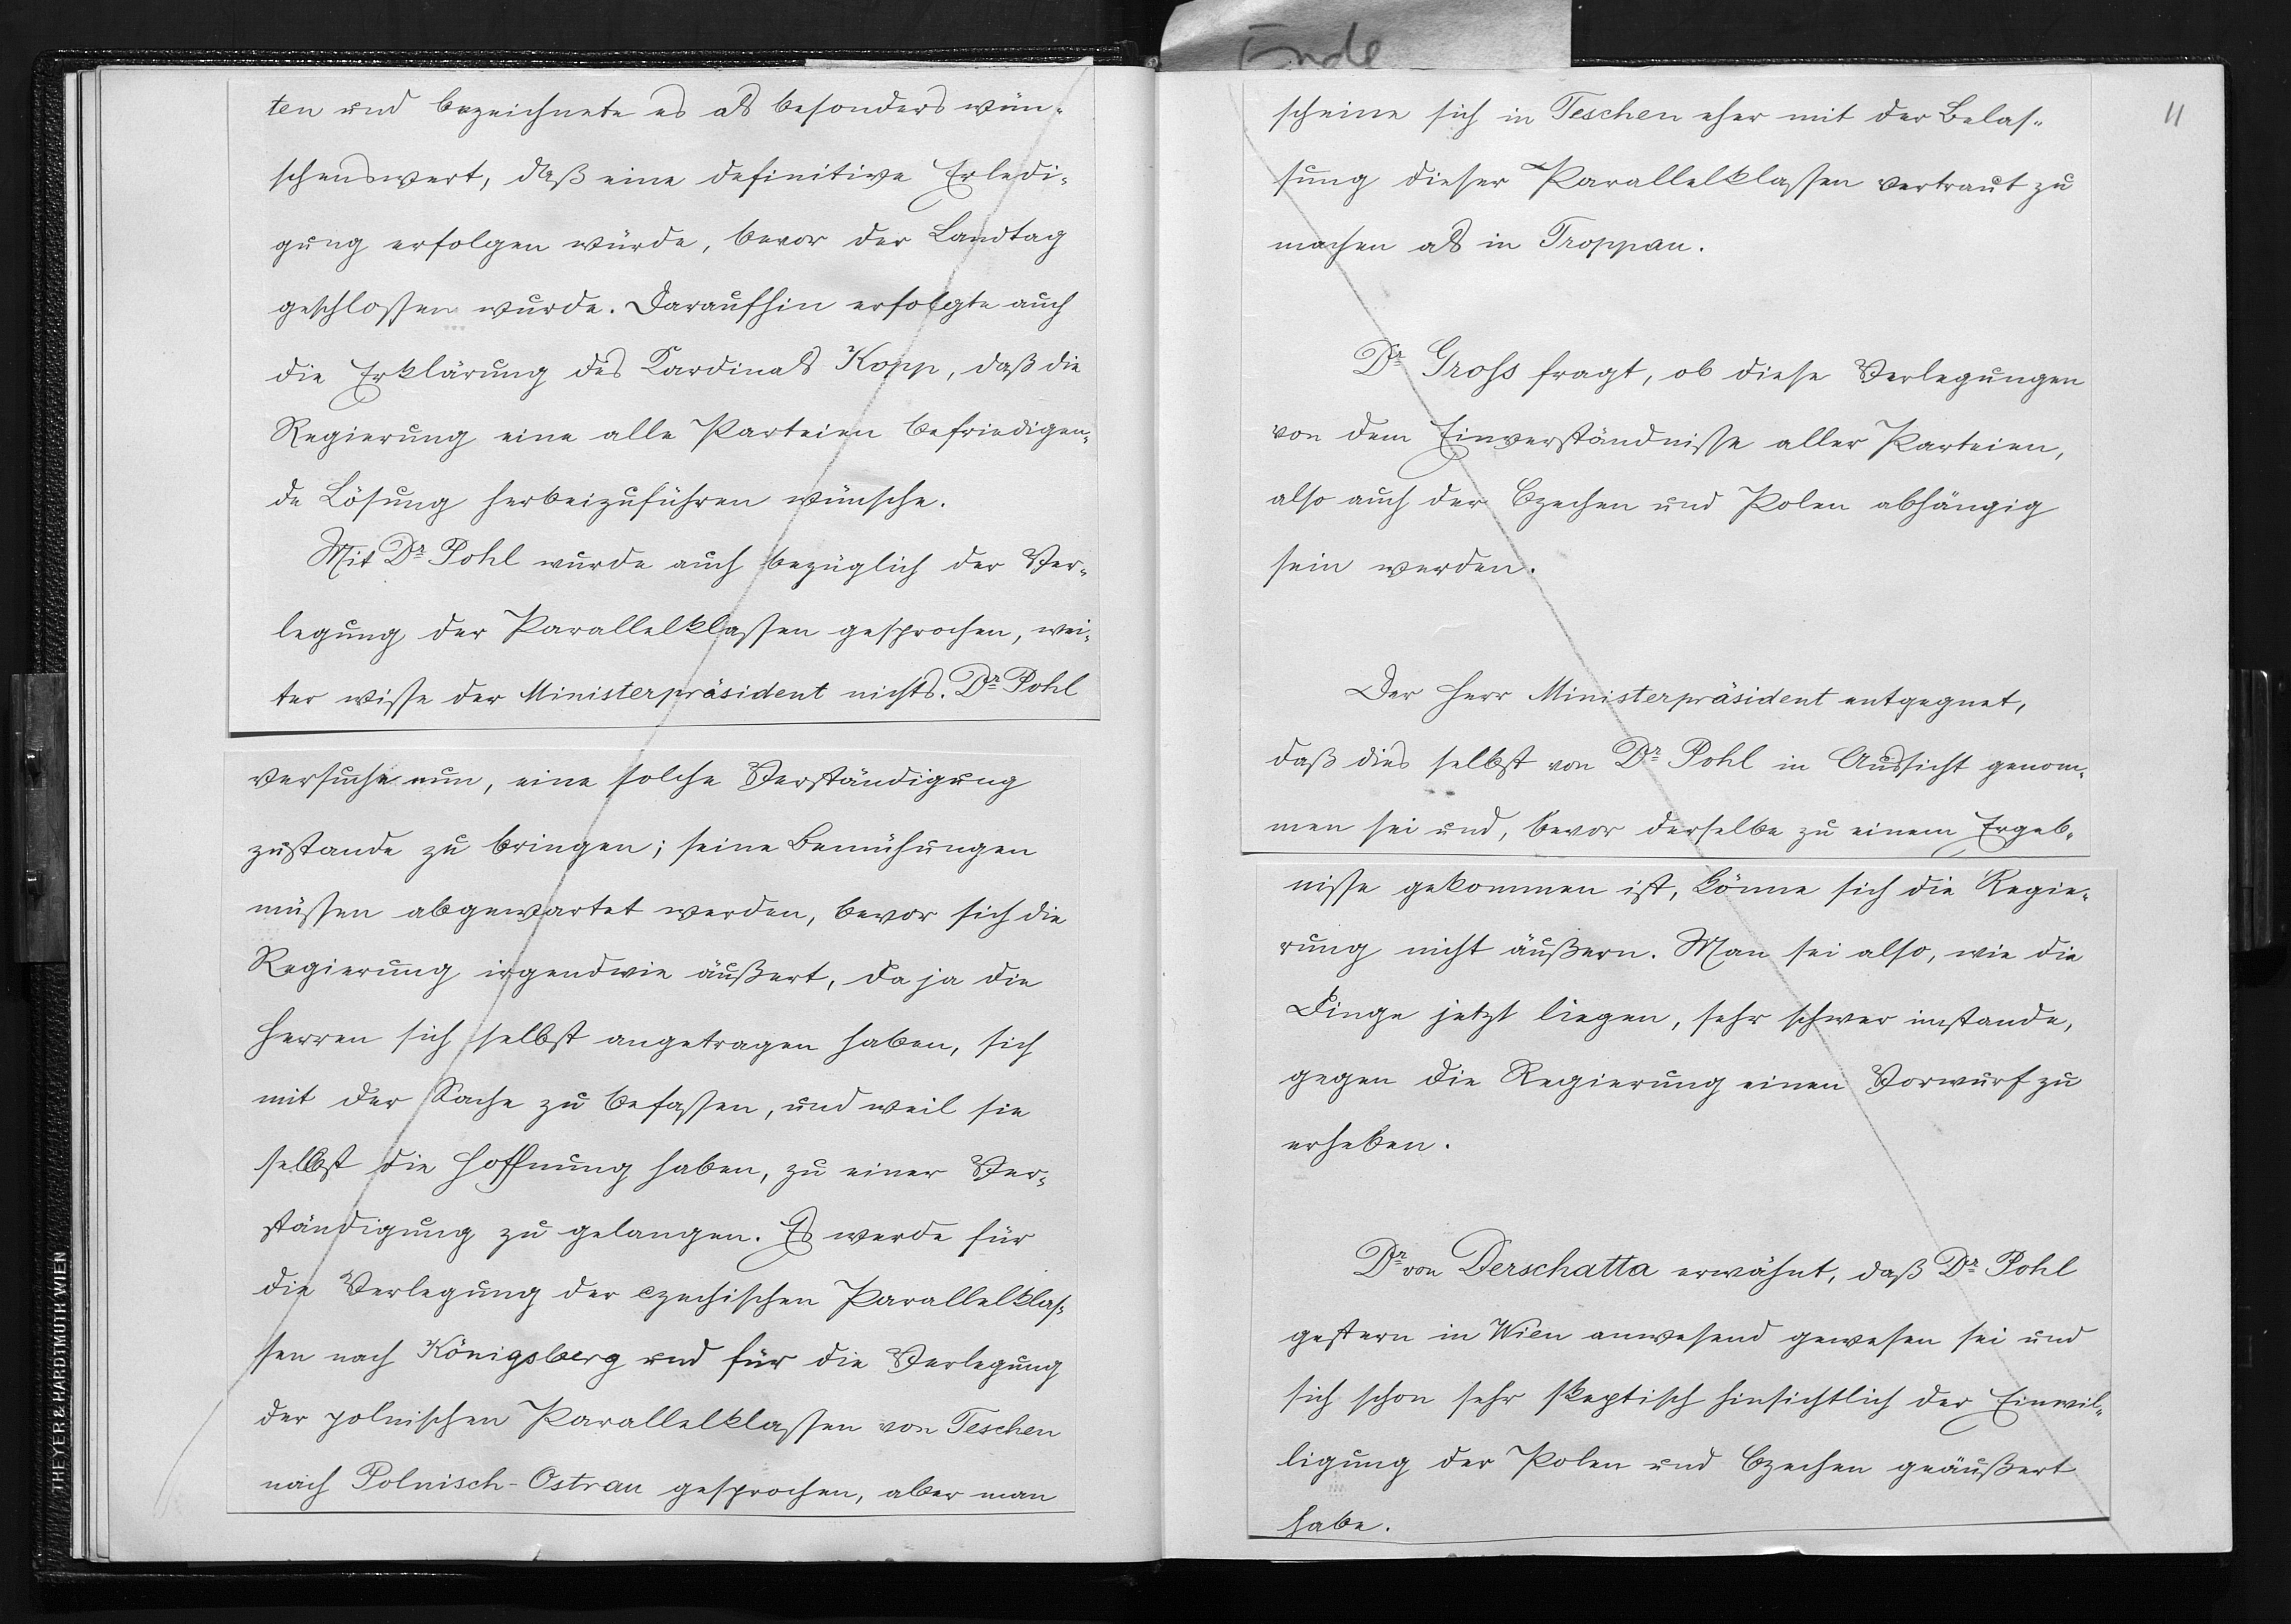 ten und bezeichnete es als besonders wün-
schenswert, daß eine definitive Erledi-
gung erfolgen würde, bevor der Landtag
geschlossen wurde. Daraufhin erfolgte auch
die Erklärung des Kardinals Kopp, daß die
Regierung eine alle Parteien befriedigen-
de Lösung herbeizuführen wünsche.
Mit Dr Pohl wurde auch bezüglich der Ver-
legung der Parallelklassen gesprochen, wei-
ter wisse der Ministerpräsident nichts. Dr Pohl
versuche nun, eine solche Verständigung
zustande zu bringen; seine Bemühungen
müssen abgewartet werden, bevor sich die
Regierung irgendwie äußert, da ja die
Herren sich selbst angetragen haben, sich
mit der Sache zu befassen, und weil sie
selbst die Hoffnung haben, zu einer Ver-
ständigung zu gelangen. Es werde für
die Verlegung der czechischen Parallelklas-
sen nach Königsberg und für die Verlegung
der polnischen Parallelklassen von Teschen
nach Polnisch-Ostrau gesprochen, aber man
THEYER & HARDTMUTH WIEN
Ende
11
scheine sich in Teschen eher mit der Belas-
sung dieser Parallelklassen vertraut zu
machen als in Troppau.
Dr Gross fragt, ob diese Verlegungen
von dem Einverständnisse aller Parteien,
also auch der Czechen und Polen abhängig
sein werden.
Der Herr Ministerpräsident entgegnet,
daß dies selbst von Dr Pohl in Aussicht genom-
men sei und, bevor derselbe zu einem Ergeb-
nisse gekommen ist, könne sich die Regie-
rung nicht äußern. Man sei also, wie die
Dinge jetzt liegen, sehr schwer imstande,
gegen die Regierung einen Vorwurf zu
erheben.
Dr von Derschatta erwähnt, daß Dr Pohl
gestern in Wien anwesend gewesen sei und
sich schon sehr skeptisch hinsichtlich der Einwil-
ligung der Polen und Czechen geäußert
habe.